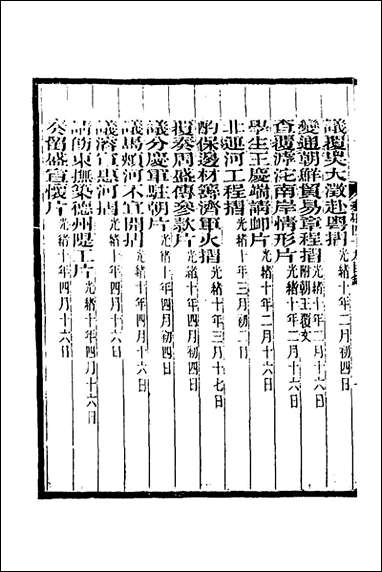 議覆吳大澂赴粵摺 光緒十年二月初四日
變通朝鮮貿易章程摺 附朝王覆文 光緒十年二月十六日
查覆滹沱南岸情形片 光緒十年二月十六日
學生王慶端請卹片 光緒十年二月十六日
北運河工程摺 光緒十年三月初二日
酌保邊材籌濟軍火摺 光緒十年三月十七日
覆奏周盛傳參款片 光緒十年四月初四日
議分慶軍駐朝片 光緒十年四月初四日
議馬頰河不宜開摺 光緒十年四月十六日
議濬宣惠河片 光緒十年四月十六日
請飭東撫築德州隄工片 光緒十年四月十六日
奏留盛宣懷片 光緒十年四月十六日